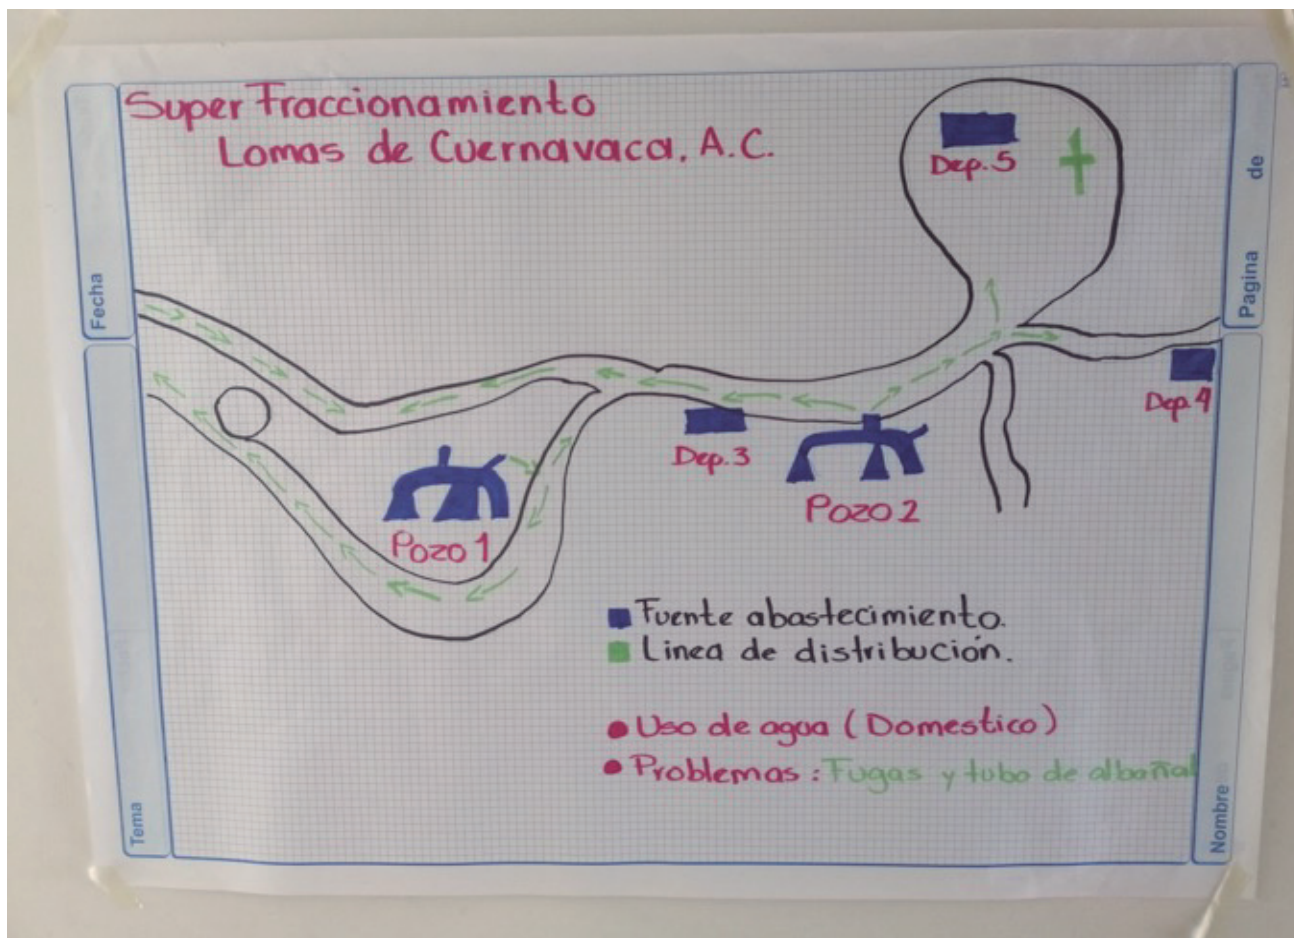 Super Fraccionamiento
Lomas de Cuernavaca, A.C.
Fecha
Pagina de
Dep. 5
Dep. 4
Dep. 3
Pozo 2
Pozo 1
Fuente abastecimiento.
Linea de distribución.
Uso de agua (Domestico)
Problemas: Fugas y tubo de albañal
Tema
Nombre